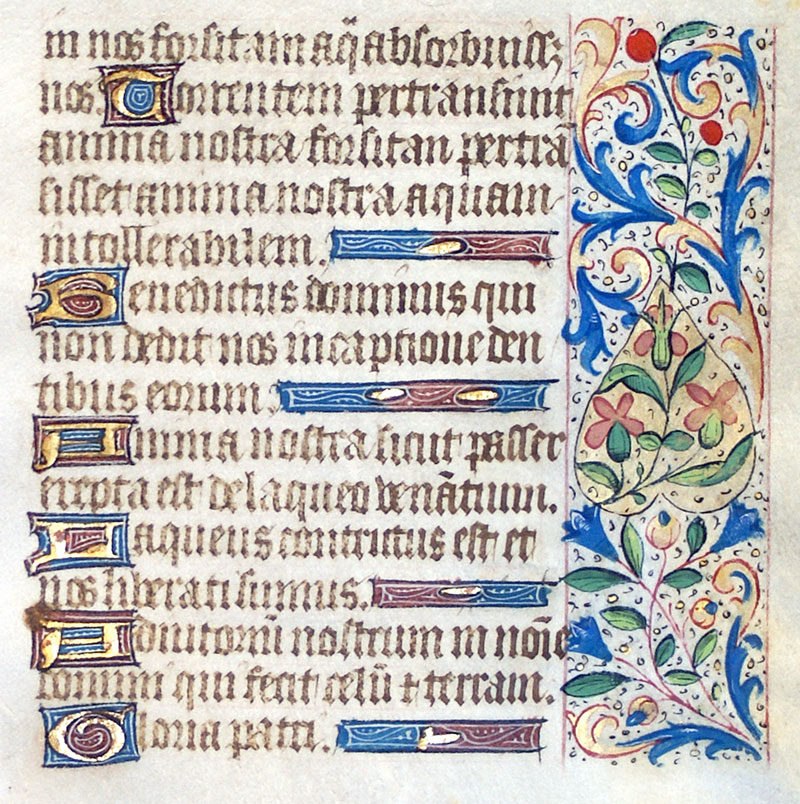 in nos forsitam aq̃ absorbuiss;
nos Torrentem pertransiuit
anima nostra forsitan pertrã
sisset anima nostra aquam
intollerabilem.
Benedictus dominus qui
non dedit nos in captione den
tibus eorum.
Anima nostra sicut passer
erepta est de laqueo venãtium.
Laqueus contritus est et
nos liberati sumus.
Adiutoriũ nostrum in noĩe
domini qui fecit celũ ⁊ terram.
Gloria patri.